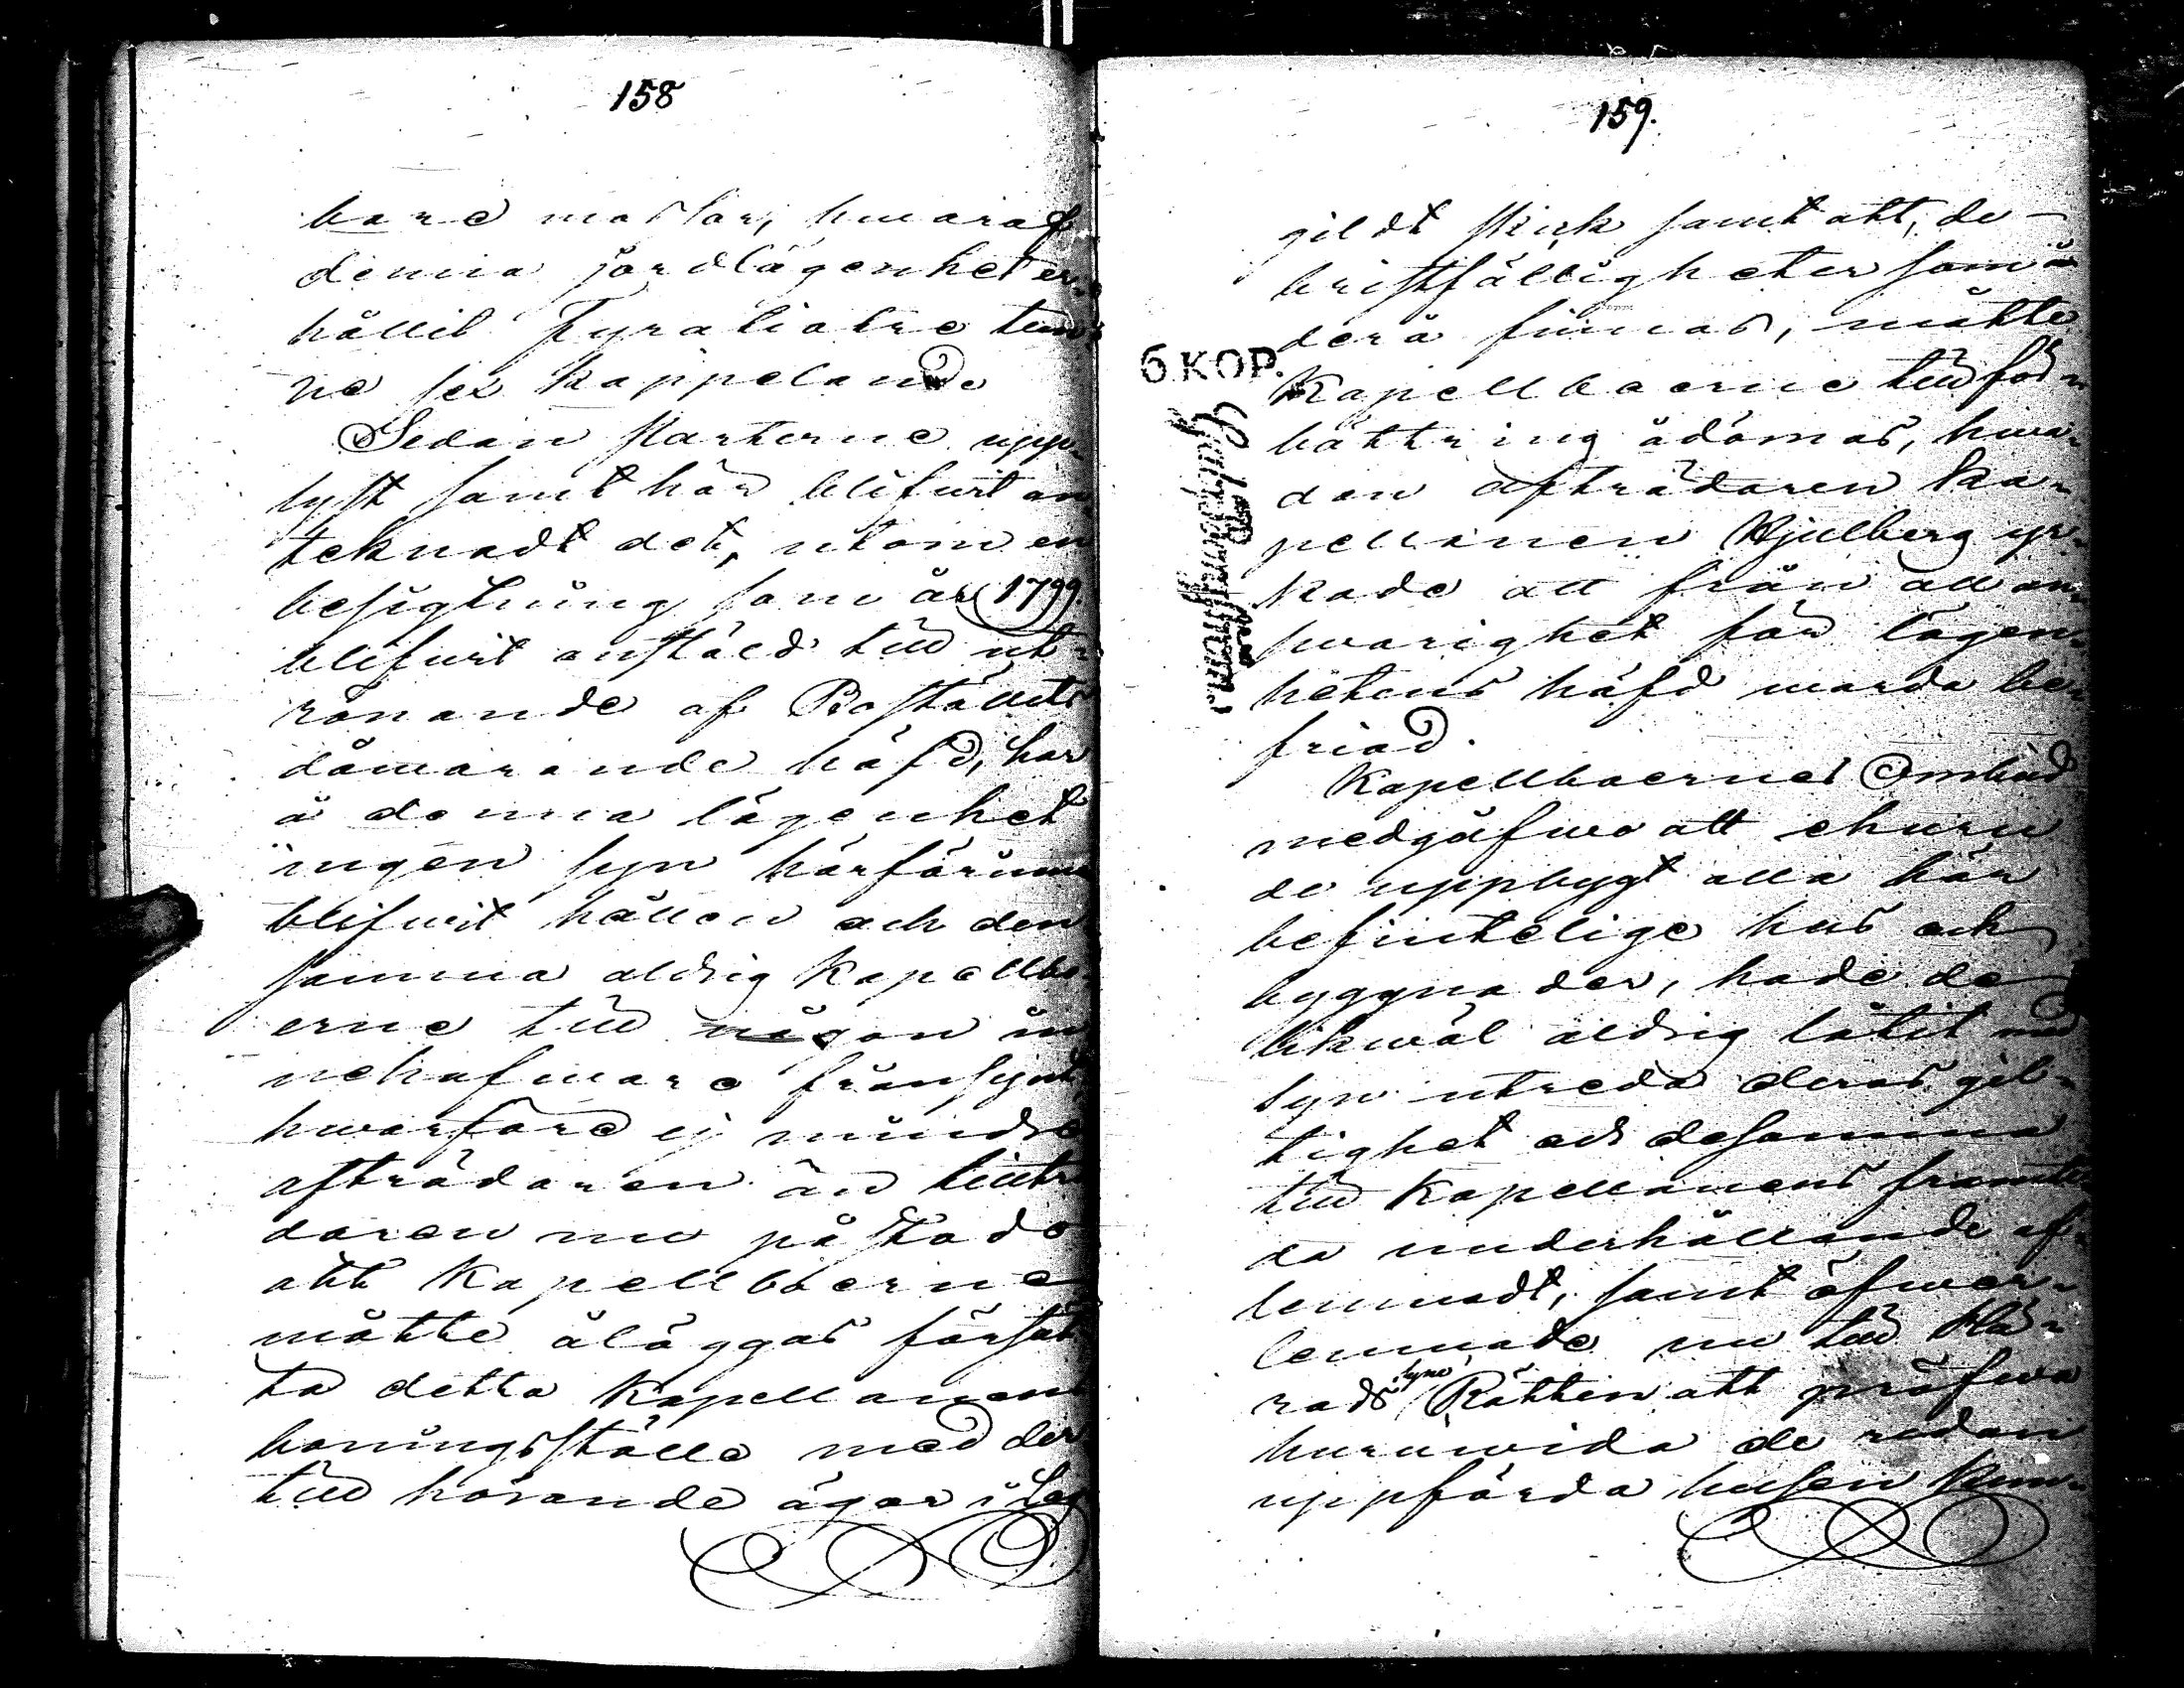 158
bare mostar, hwaraf
denna jordlägenhet er-
hållit Fyratiotre tun-
ne sex kappeland
Sedan parterne upp-
lyst samt här blifwit an-
teknadt det, utom en
besigtning som år 1799.
blifwit anstäld till ut-
rönande af Boställets
dåwarande häfd, har
å denna lägenhet
ingen syn härförinnan
blifwit hållen och den
samma aldrig Kapellbo-
erne till någon in-
nehafware fränsynt,
hwarföre ej mindre
afträdaren än tillträ-
daren nu påstodo
att Kapellboerne
måtte åläggas försät-
ta detta Kapellanens
boningsställe med der
till hörande ägor i lag
159.
gildt skick samt att, de
bristfälligheter som i
dera finnas, måtte
Kapellboerne till för-
bättring ådömas, hwar-
dan afträdaren Ka-
pellanen Hjulberg yr-
kade att från all an-
swarighet för lägen-
hetens häfd warda be-
friad.
Kapellboernes Ombud
medgåfwo att ehuru
de uppbygt alla här
befintelige hus och
byggnader, hade de
likwäl aldrig låtit med
syn utreda deras gil-
tighet och desamma
till Kapellanens framti-
da underhållande af-
lemnadt, samt öfwer-
lemnade nu till Hä-
rads syne Rätten att pröfwa
huruwida de redan
uppförda husen kun-
6 KOP.